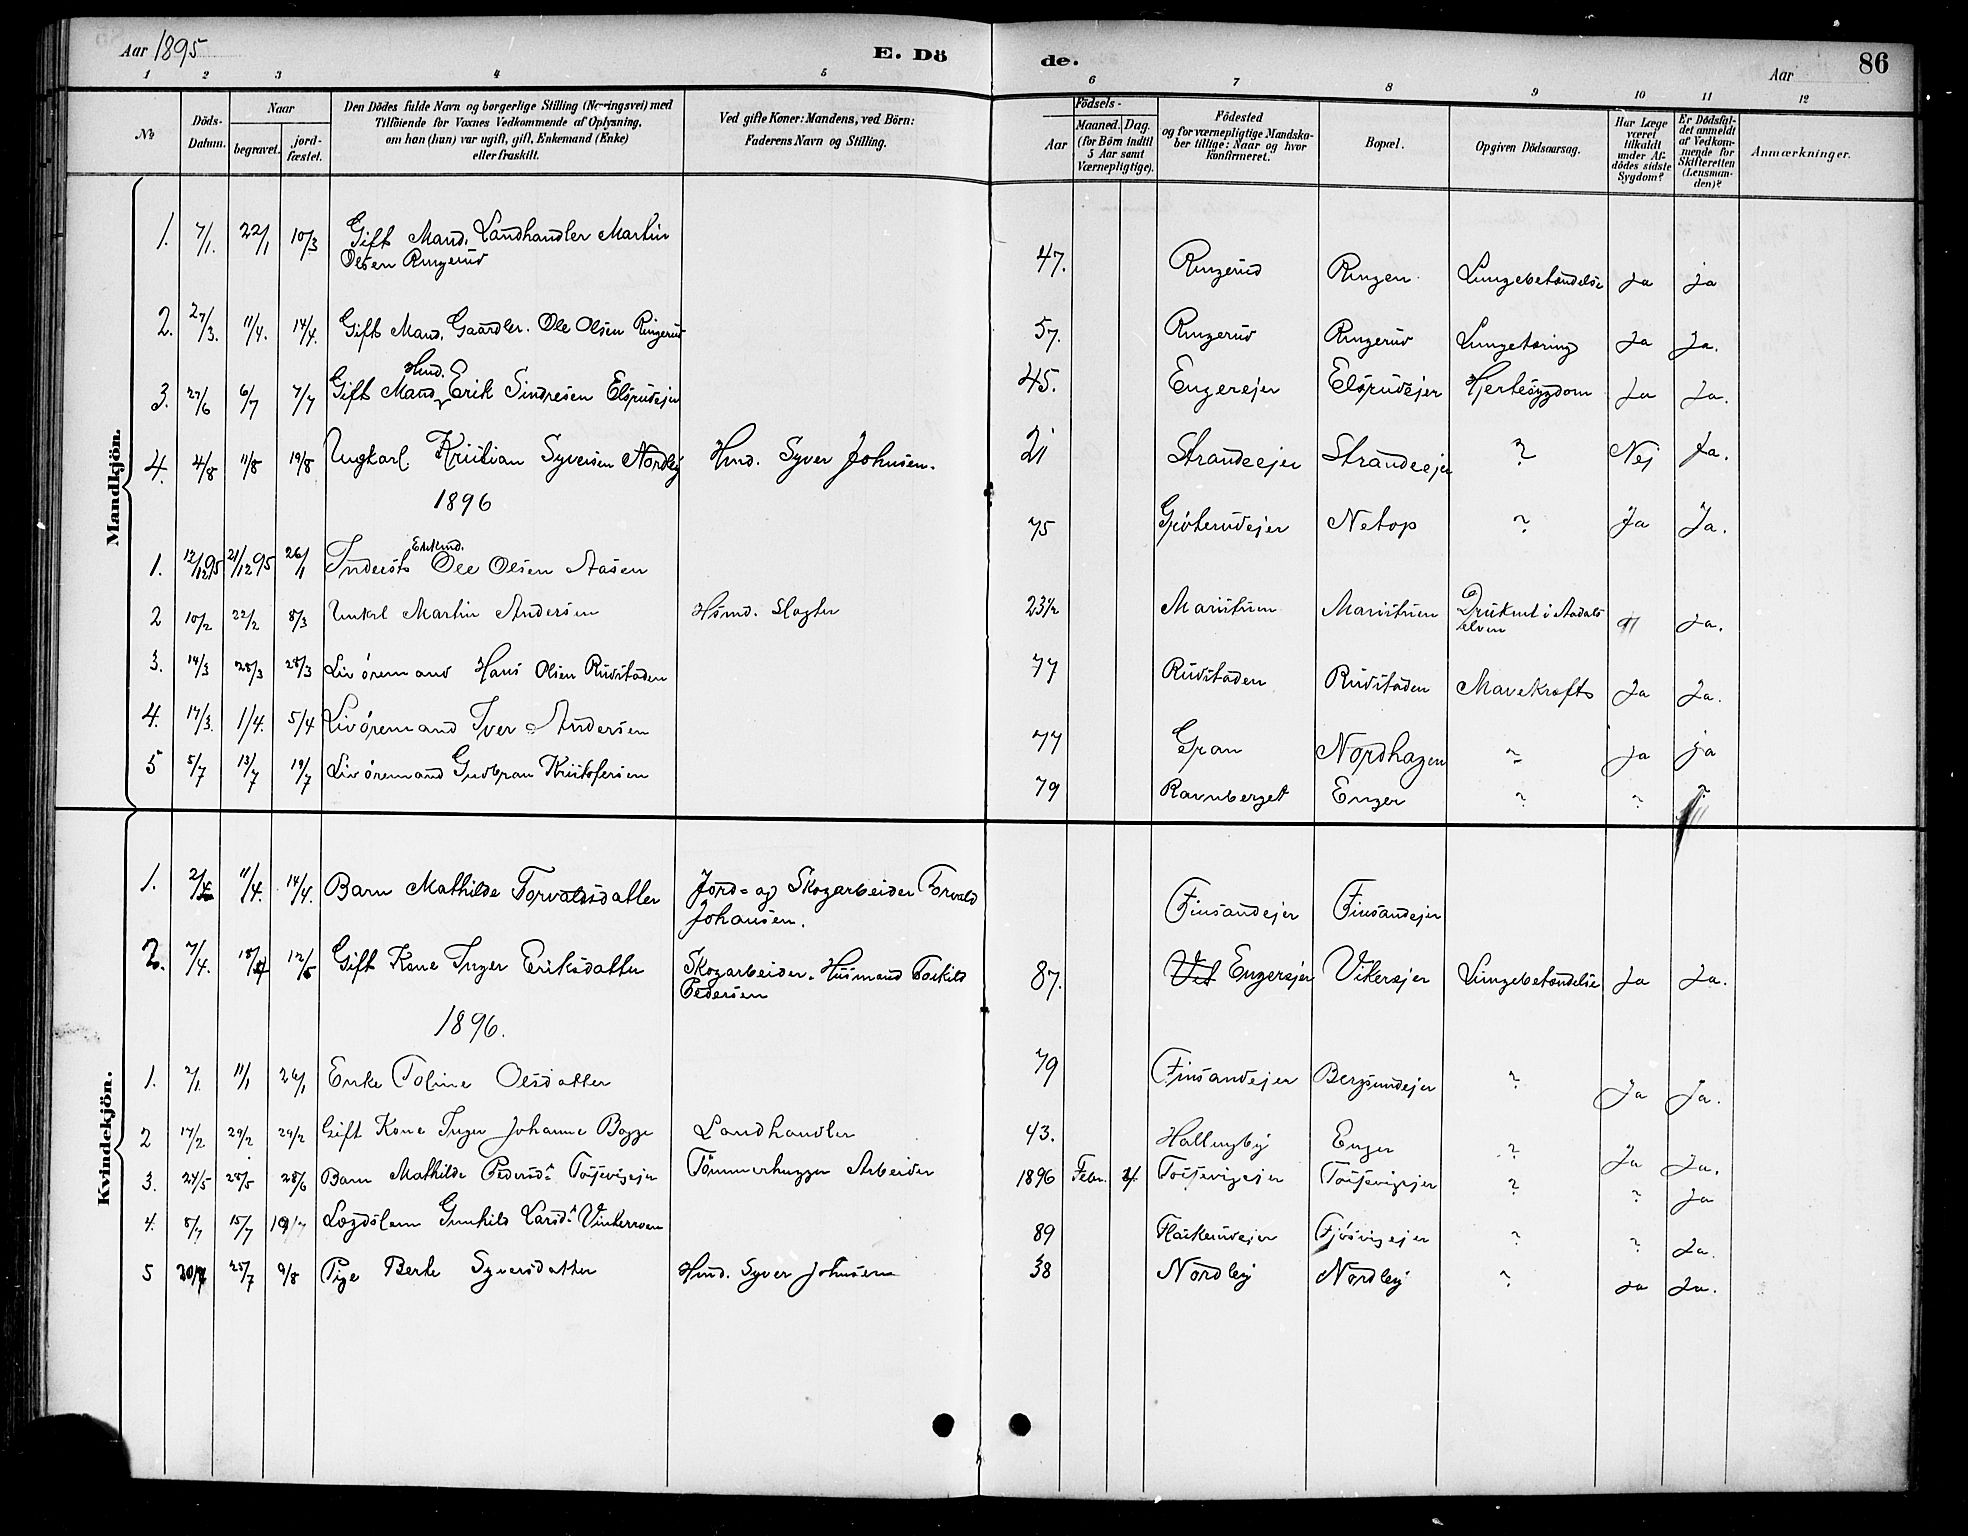 Aar 1895
E. Dö
de.
Aar
86
1 2 3 4 5 6 7 8 9 10 11 12
No
Döds-
Datum.
Naar
begravet.
jord-
fæstet.
Den Dödes fulde Navn og borgerlige Stilling (Næringsvei) med
Tilföiende for Voxnes Vedkommende af Oplysning,
om han (hun) var ugift, gift, Enkemand (Enke)
eller fraskilt.
Ved gifte Koner: Mandens, ved Börn:
Faderens Navn og Stilling.
Födsels-
Aar
Maaned. Dag.
(for Börn indtil
5 Aar samt
Værnepligtige).
Födested
og for værnepligtige Mandska-
ber tillige: Naar og hvor
konfirmeret.
Bopæl.
Opgiven Dödsaarsag.
Har Læge
været
tilkaldt
under Af-
dödes sidste
Sygdom?
Er Dödsfal-
det anmeldt
af Vedkom-
mende for
Skifteretten
(Lensman-
den)?
Anmærkninger.
Mandkjön.
1. 7/1. 22/1 10/3 Gift Mand. Landhandler Martin
Olsen Ringerud
47. Ringerud Ringen Lungebetændelse ja ja
2. 27/3. 11/4. 14/4. Gift Mand. Gaardbr. Ole Olsen Ringerud 57. Ringerud Ringerud Lungetæring Ja Ja.
Hmd.
3. 27/6 6/7 7/7 Gift Mand Erik Sindresen Elsrudejer 45. Engerejer Elsrudejer Hjertesygdom Ja Ja.
4. 4/8 11/8 19/8 Ungkarl. Kristian Syversen Nordby Hmd. Syver Johnsen. 21 Strandeejer Strandeejer ? Nej Ja.
1896
Enkmd.
1. 12/12 95 21/12 95 26/1 Inderst Ole Olsen Aasen 75 Gröterudejer Netop ? Ja Ja.
2 10/2 22/2 8/3 Unkrl Martin Andersen Husmd. Slagter 23½ Maristuen Maristuen Druknet i Aadals
elven
Ja.
3. 14/3 28/3 28/3 Livöremand Hans Olsen Rudstaden 77 Rudstaden Rudstaden Mavekræft Ja Ja.
4. 17/3. 1/4. 5/4 Livöremand Iver Andersen 77 Gran Nordhagen ? ja ja
5 5/7 13/7 19/7 Livöremand Gudbran Kristofersen 79 Ravnberget Enger ? ? ?
Kvindekjön.
1. 2/4 11/4. 14/4. Barn Mathilde Torvaldsdatter Jord- og Skogarbeider Torvald
Johansen.
Finsandejer Finsandejer
2. 7/4. 18/4 12/5 Gift Kone Inger Eriksdatter Skogarbeider. Husmand Torkild
Pedersen
87. Vik Engerejer Vikerejer Lungebetændelse Ja Ja.
1896.
1. 2/1. 11/1 26/1 Enke Toline Olsdatter 79 Finsandejer Bergsundejer ? Ja Ja.
2 17/2 29/2 29/2 Gift Kone Inger Johanne Bagge Landhandler 43. Hallingby Enger ? Ja Ja.
3. 24/5 25/5 28/6 Barn Mathilde Pedersd. Tossevigejer Tömmerhugger Arbeider 1896 Febr. Tossevigejer Tossevigejer ? ? Ja
4. 8/7 15/7 19/7 Lægdslem Gunhild Larsd. Vinkerroen 89 Flaskerudejer Fjösvigejer ? ? Ja.
5 20/7 25/7 9/8 Pige Berte Syversdatter Hmd. Syver Johnsen 38 Nordby Nordby ? Ja Ja.